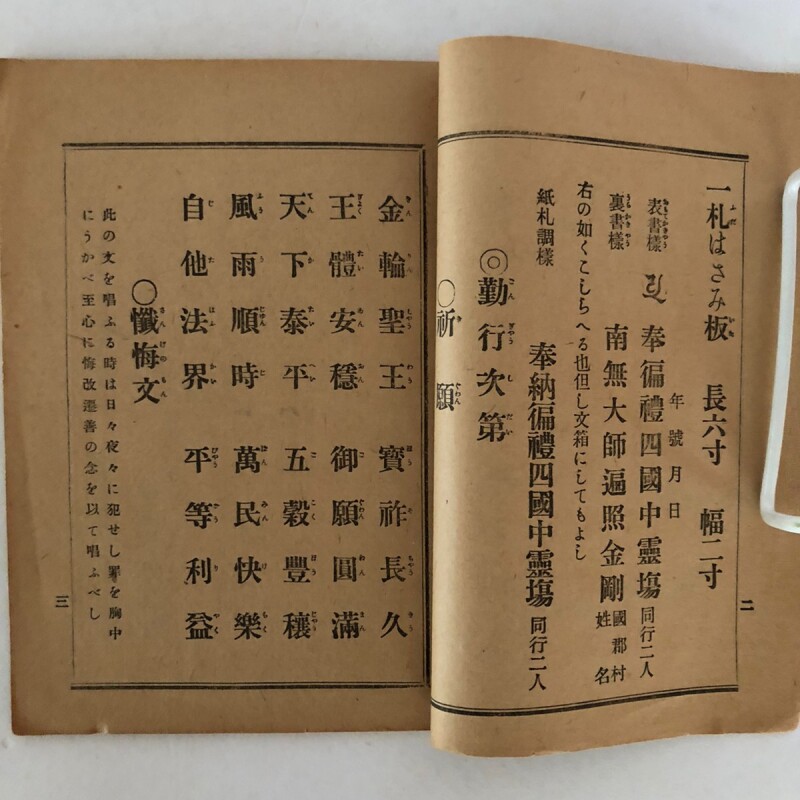 一札はさみ板 長六寸 幅二寸
年號月日
表書樣 奉徧禮四國中靈塲 同行二人
裏書樣 南無大師遍照金剛 國郡村 姓名
右の如くこしらへる也但し文箱にしてもよし
紙札調樣 奉納徧禮四國中靈塲 同行二人
◎勤行次第
○祈願
二
金輪聖王 寶祚長久
王體安穩 御願圓滿
天下泰平 五穀豐穰
風雨順時 萬民快樂
自他法界 平等利益
○懺悔文
此の文を唱ふる時は日々夜々に犯せし罪を胸中
にうかべ至心に悔改遷善の念を以て唱ふべし
三